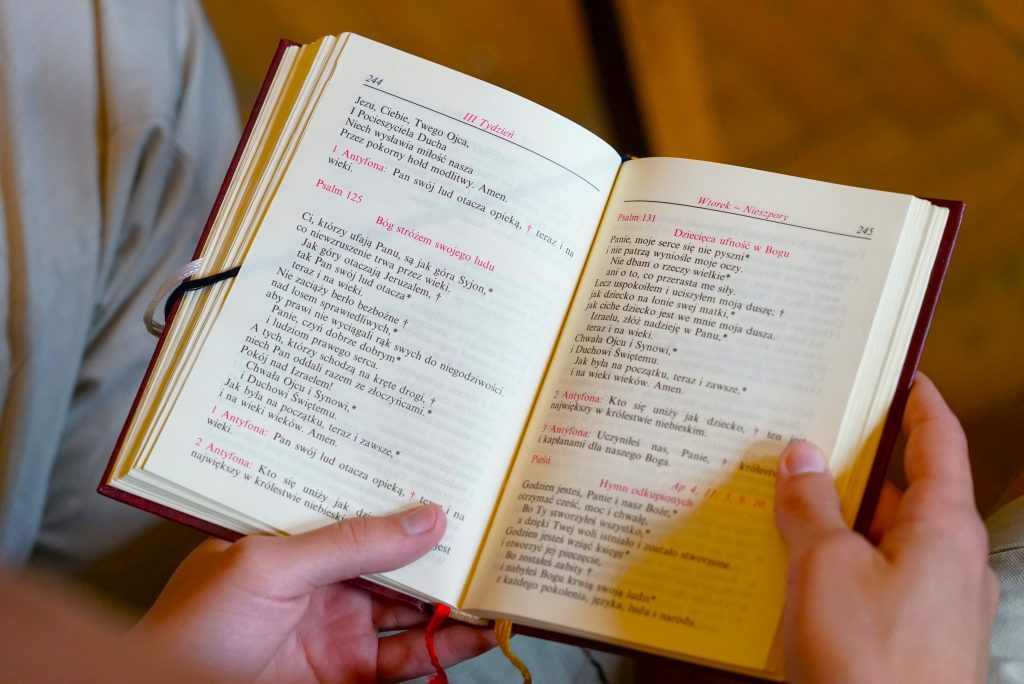 244
III Tydzień
Jezu, Ciebie, Twego Ojca,
I Pocieszyciela Ducha
Niech wysławia miłość nasza
Przez pokorny hołd modlitwy. Amen.
1 Antyfona: Pan swój lud otacza opieką, † teraz i na
wieki.
Psalm 125
Bóg stróżem swojego ludu
Ci, którzy ufają Panu, są jak góra Syjon,*
co niewzruszenie trwa przez wieki.
Jak góry otaczają Jeruzalem, †
tak Pan swój lud otacza*
teraz i na wieki.
Nie zaciąży berło bezbożne †
nad losem sprawiedliwych,*
aby prawi nie wyciągali rąk swych do niegodziwości
Panie, czyń dobrze dobrym*
i ludziom prawego serca.
A tych, którzy schodzą na kręte drogi, †
niech Pan oddali razem ze złoczyńcami.*
Pokój nad Izraelem!
Chwała Ojcu i Synowi,*
i Duchowi Świętemu.
Jak była na początku, teraz i zawsze,*
i na wieki wieków. Amen.
1 Antyfona: Pan swój lud otacza opieką, † teraz i na
wieki.
2 Antyfona: Kto się uniży jak
największy w królestwie niebieskim
Wtorek – Nieszpory
245
Psalm 131
Dziecięca ufność w Bogu
Panie, moje serce się nie pyszni*
i nie patrzą wyniośle moje oczy.
Nie dbam o rzeczy wielkie*
ani o to, co przerasta me siły.
Lecz uspokoiłem i uciszyłem moją duszę; †
jak dziecko na łonie swej matki,*
jak ciche dziecko jest we mnie moja dusza.
Izraelu, złóż nadzieję w Panu,*
teraz i na wieki.
Chwała Ojcu i Synowi,*
i Duchowi Świętemu.
Jak była na początku, teraz i zawsze,*
i na wieki wieków. Amen.
2 Antyfona: Kto się uniży jak dziecko, † ten jest
największy w królestwie niebieskim.
3 Antyfona: Uczyniłeś nas, Panie, †
i kapłanami dla naszego Boga.
Pieśń
Ap 4, 11; 5, 9. 10.
Hymn odkupionych
Godzien jesteś, Panie i nasz Boże,*
otrzymać cześć, moc i chwałę,
Bo Ty stworzyłeś wszystko,*
a dzięki Twej woli istniało i zostało stworzone.
Godzien jesteś wziąć księgę*
i otworzyć jej pieczęcie,
Bo zostałeś zabity †
i nabyłeś Bogu krwią swoją ludzi*
z każdego pokolenia, języka, ludu i narodu,